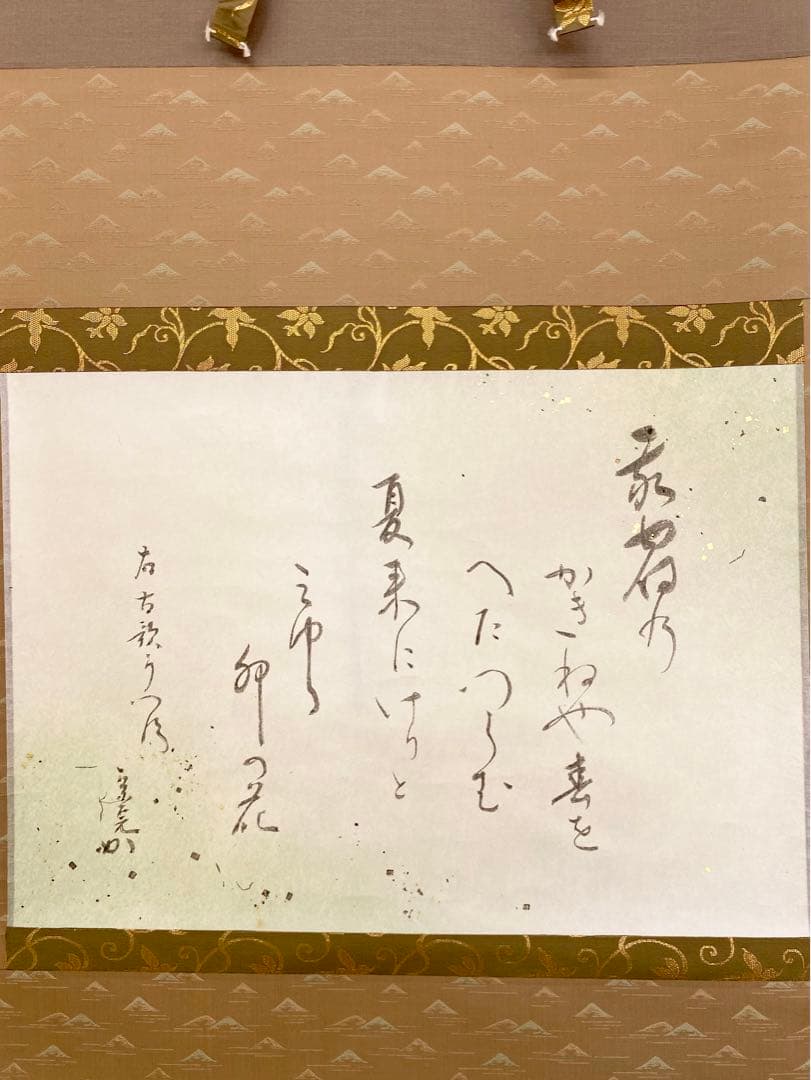 我宿の
かきねや春を
へたつらむ
夏来にけりと
みゆる
卯の花
右古歌